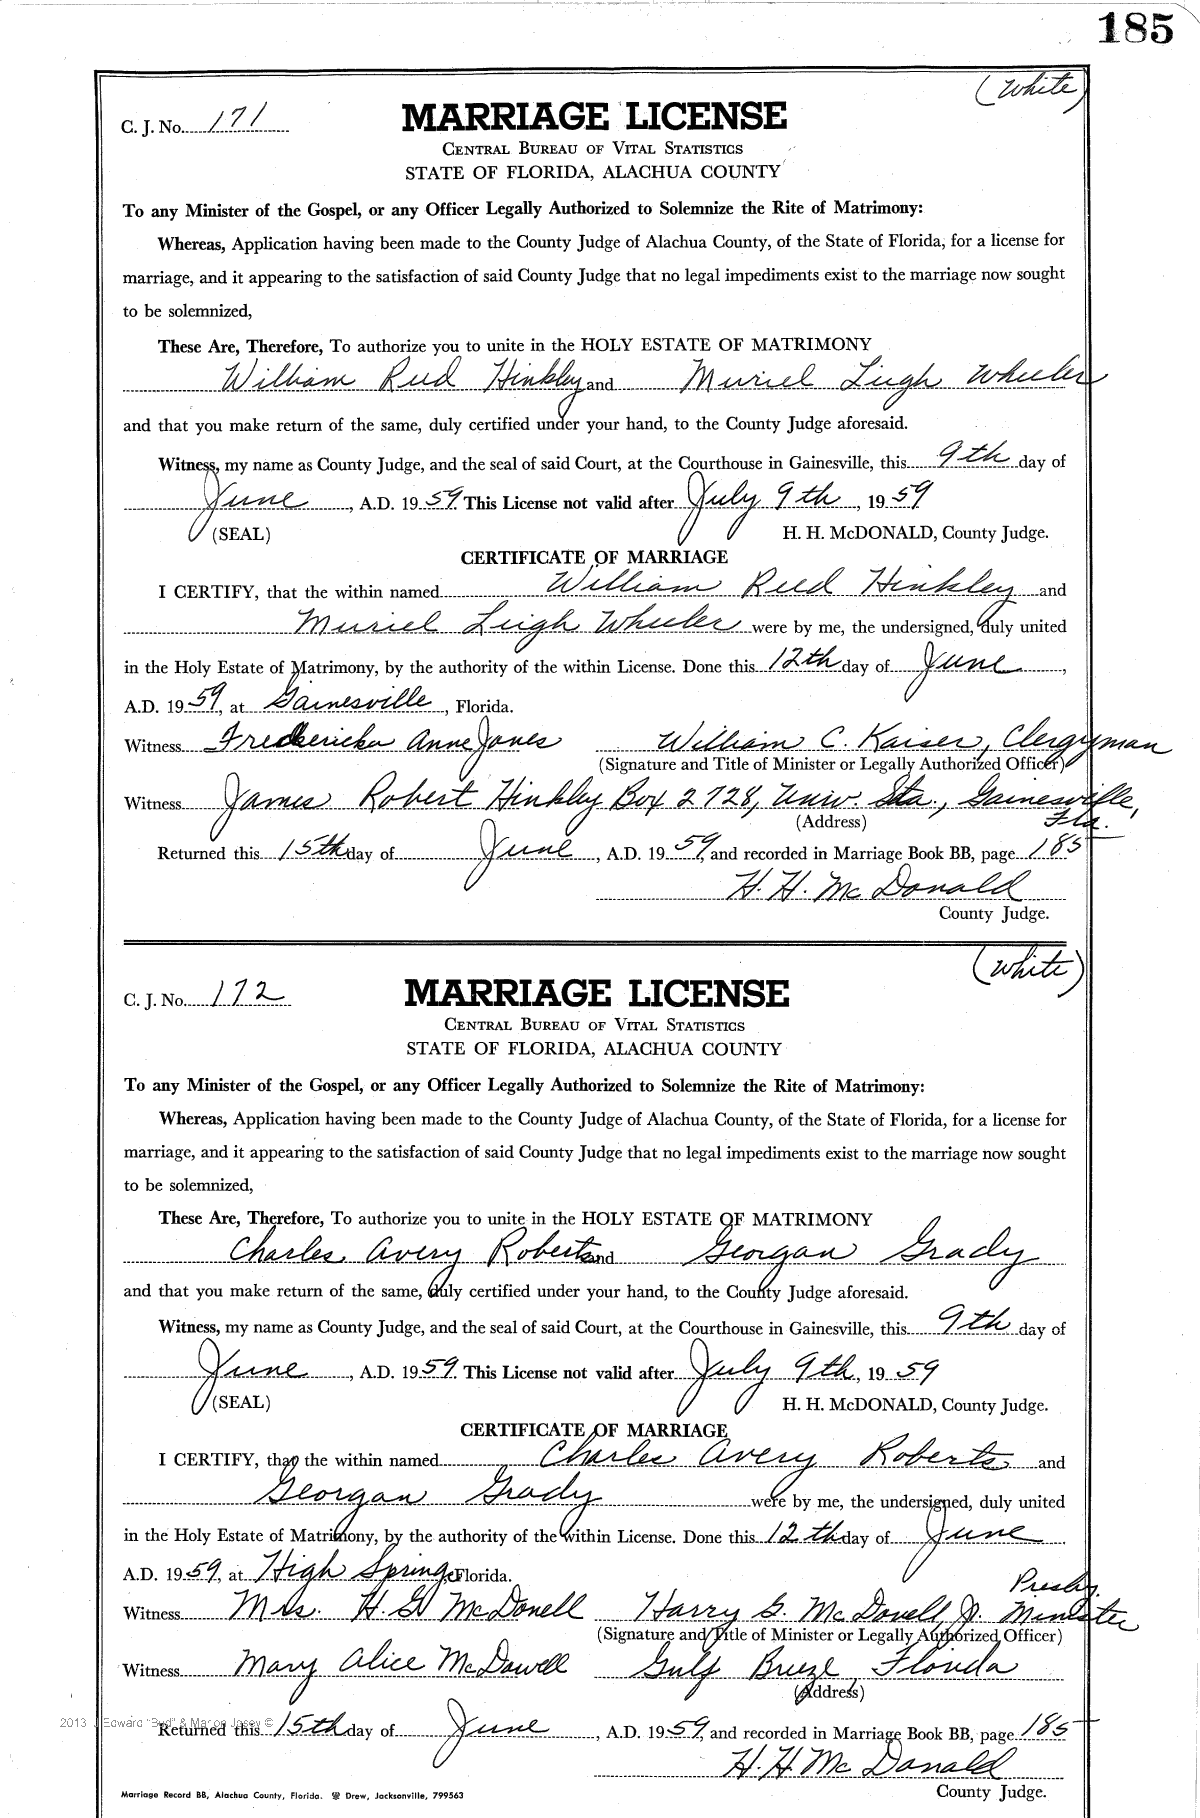 185
(White)
C. J. No. 171
MARRIAGE LICENSE
CENTRAL BUREAU OF VITAL STATISTICS
STATE OF FLORIDA, ALACHUA COUNTY
To any Minister of the Gospel, or any Officer Legally Authorized to Solemnize the Rite of Matrimony:
Whereas, Application having been made to the County Judge of Alachua County, of the State of Florida, for a license for
marriage, and it appearing to the satisfaction of said County Judge that no legal impediments exist to the marriage now sought
to be solemnized,
These Are, Therefore, To authorize you to unite in the HOLY ESTATE OF MATRIMONY
William Reed Hinkley and Muriel Leigh Wheeler
and that you make return of the same, duly certified under your hand, to the County Judge aforesaid.
Witness, my name as County Judge, and the seal of said Court, at the Courthouse in Gainesville, this 9th day of
June, A.D. 1959. This License not valid after July 9th, 1959
(SEAL) H. H. McDONALD, County Judge.
CERTIFICATE OF MARRIAGE
I CERTIFY, that the within named William Reed Hinkley and
Muriel Leigh Wheeler were by me, the undersigned, duly united
in the Holy Estate of Matrimony, by the authority of the within License. Done this 12th day of June,
A.D. 1959, at Gainesville, Florida.
Witness Fredericka Anne Jones William C. Kaiser, Clergyman
(Signature and Title of Minister or Legally Authorized Officer)
Witness James Robert Hinkley Box 2728, Univ. Sta., Gainesville, Fla.
(Address)
Returned this 15th day of June, A.D. 1959, and recorded in Marriage Book BB, page 185
H. H. McDonald
County Judge.
(White)
C. J. No. 172
MARRIAGE LICENSE
CENTRAL BUREAU OF VITAL STATISTICS
STATE OF FLORIDA, ALACHUA COUNTY
To any Minister of the Gospel, or any Officer Legally Authorized to Solemnize the Rite of Matrimony:
Whereas, Application having been made to the County Judge of Alachua County, of the State of Florida, for a license for
marriage, and it appearing to the satisfaction of said County Judge that no legal impediments exist to the marriage now sought
to be solemnized,
These Are, Therefore, To authorize you to unite in the HOLY ESTATE OF MATRIMONY
Charles Avery Roberts and Georgan Grady
and that you make return of the same, duly certified under your hand, to the County Judge aforesaid.
Witness, my name as County Judge, and the seal of said Court, at the Courthouse in Gainesville, this 9th day of
June, A.D. 1959. This License not valid after July 9th, 1959
(SEAL) H. H. McDONALD, County Judge.
CERTIFICATE OF MARRIAGE
I CERTIFY, that the within named Charles Avery Roberts and
Georgan Grady were by me, the undersigned, duly united
in the Holy Estate of Matrimony, by the authority of the within License. Done this 12th day of June
A.D. 1959, at High Springs, Florida.
Witness Mrs. H. G. McDonell Harry G. McDonell, Jr. Presby. Minister
(Signature and Title of Minister or Legally Authorized Officer)
Witness Mary Alice McDowell Gulf Breeze, Florida
(Address)
Returned this 15th day of June, A.D. 1959, and recorded in Marriage Book BB, page 185
H. H. McDonald
County Judge.
Marriage Record BB, Alachua County, Florida. Drew, Jacksonville, 799563
2013 J Edward "Bud" & Marion Jasey ©